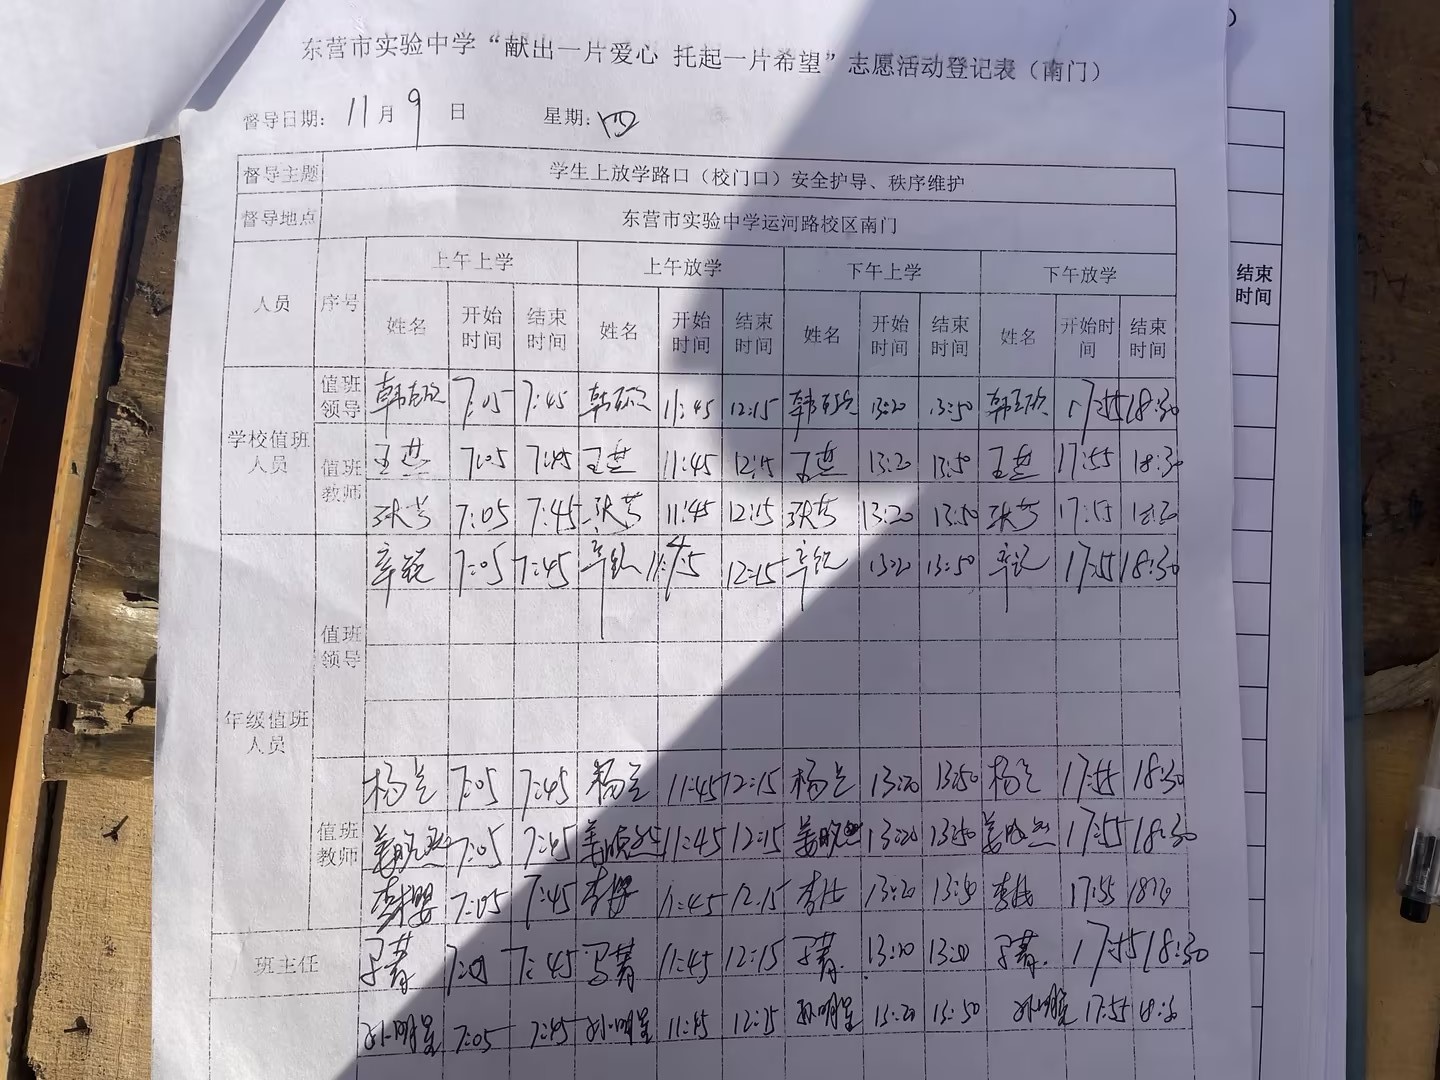 东营市实验中学“献出一片爱心 托起一片希望”志愿活动登记表（南门）
督导日期： 11月 9 日 星期：四
督导主题 学生上放学路口（校门口）安全护导、秩序维护
督导地点 东营市实验中学运河路校区南门
人员 序号 上午上学 上午放学 下午上学 下午放学
姓名 开始时间 结束时间 姓名 开始时间 结束时间 姓名 开始时间 结束时间 姓名 开始时间 结束时间
结束时间
学校值班人员
值班领导 7:05 7:45 11:45 12:15 13:20 13:50 17:55 18:30
值班教师 王燕 7:05 7:45 王燕 11:45 12:15 王燕 13:20 13:50 王燕 17:55 18:30
张芳 7:05 7:45 张芳 11:45 12:15 张芳 13:20 13:50 张芳 17:55 18:30
年级值班人员
值班领导 7:05 7:45 11:45 12:15 13:20 13:50 17:55 18:30
值班教师 杨兰 7:05 7:45 杨兰 11:45 12:15 杨兰 13:20 13:50 杨兰 17:55 18:30
7:05 7:45 11:45 12:15 13:20 13:50 17:55 18:30
7:05 7:45 11:45 12:15 13:20 13:50 17:55 18:30
班主任 7:45 11:45 12:15 13:20 13:50 17:55 18:30
孙明星 7:05 7:45 孙明星 11:45 12:15 孙明星 13:20 13:50 孙明星 17:55 18:30